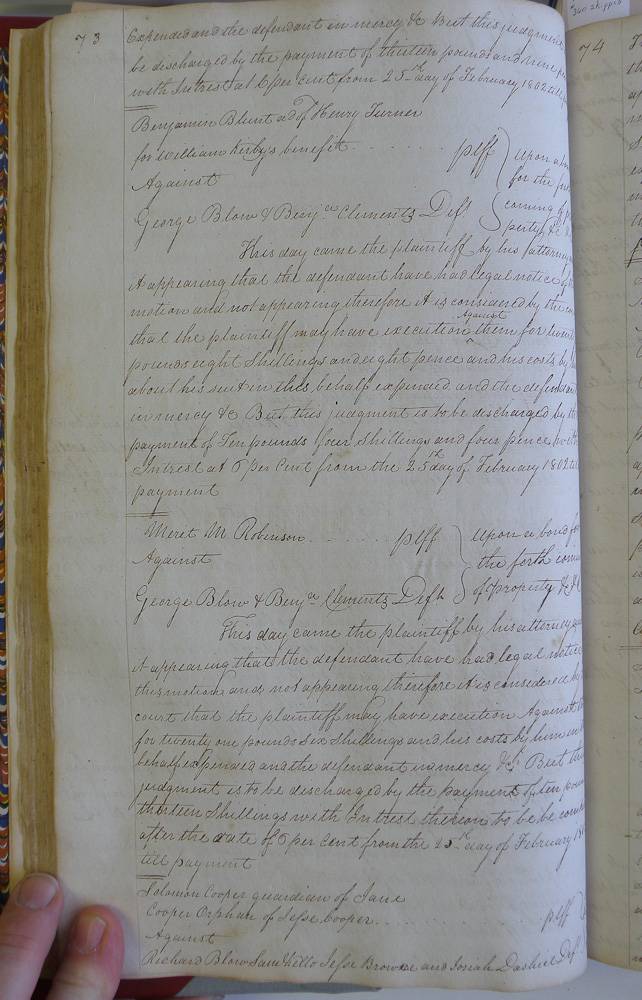 73
Expended and the defendant in mercy &c But this judgment
be discharged by the payment of thirteen pounds and nine
with Intrest at 6 per cent from 25th day of February 1802 till
Benjamin Blunt ad of Henry Turner
for William Kerby's benefit . . . . . . . plff
Against
George Blow & Benja Clements Deft
Upon a
for the
coming of
perty &c
This day came the plaintiff by his attorney
it appearing that the defendant have had legal notice of
motion and not appearing therefore it is considered by the
that the plaintiff may have execution Against them for
pounds eight Shillings and eight pence and his costs by
about his suit in this behalf expended and the defendant
in mercy &c But this judgment is to be discharged by the
payment of Ten pounds four Shillings and four pence with
Intrest at 6 per Cent from the 25th day of February 1802
payment
Meret M Robinson . . . . . . plff
Against
George Blow & Benja Clements Deft
Upon a bond for
the forth
of property &c
This day came the plaintiff by his attorney
it appearing that the defendant have had legal notice
this motion and not appearing therefore it is considered by
court that the plaintiff may have execution Against
for twenty one pounds Six Shillings and his costs by him in
behalf expended and the defendant in mercy &c But this
judgment is to be discharged by the payment of ten pounds
thirteen Shillings with Intrest thereon to be be
after the date of 6 per Cent from the 25th day of February
till payment
Solomon Cooper guardian of Jane
Cooper Orphan of Jesse Cooper . . . . plff
Against
Richard Blow Jesse Browne and Josiah Dashiel Def
74